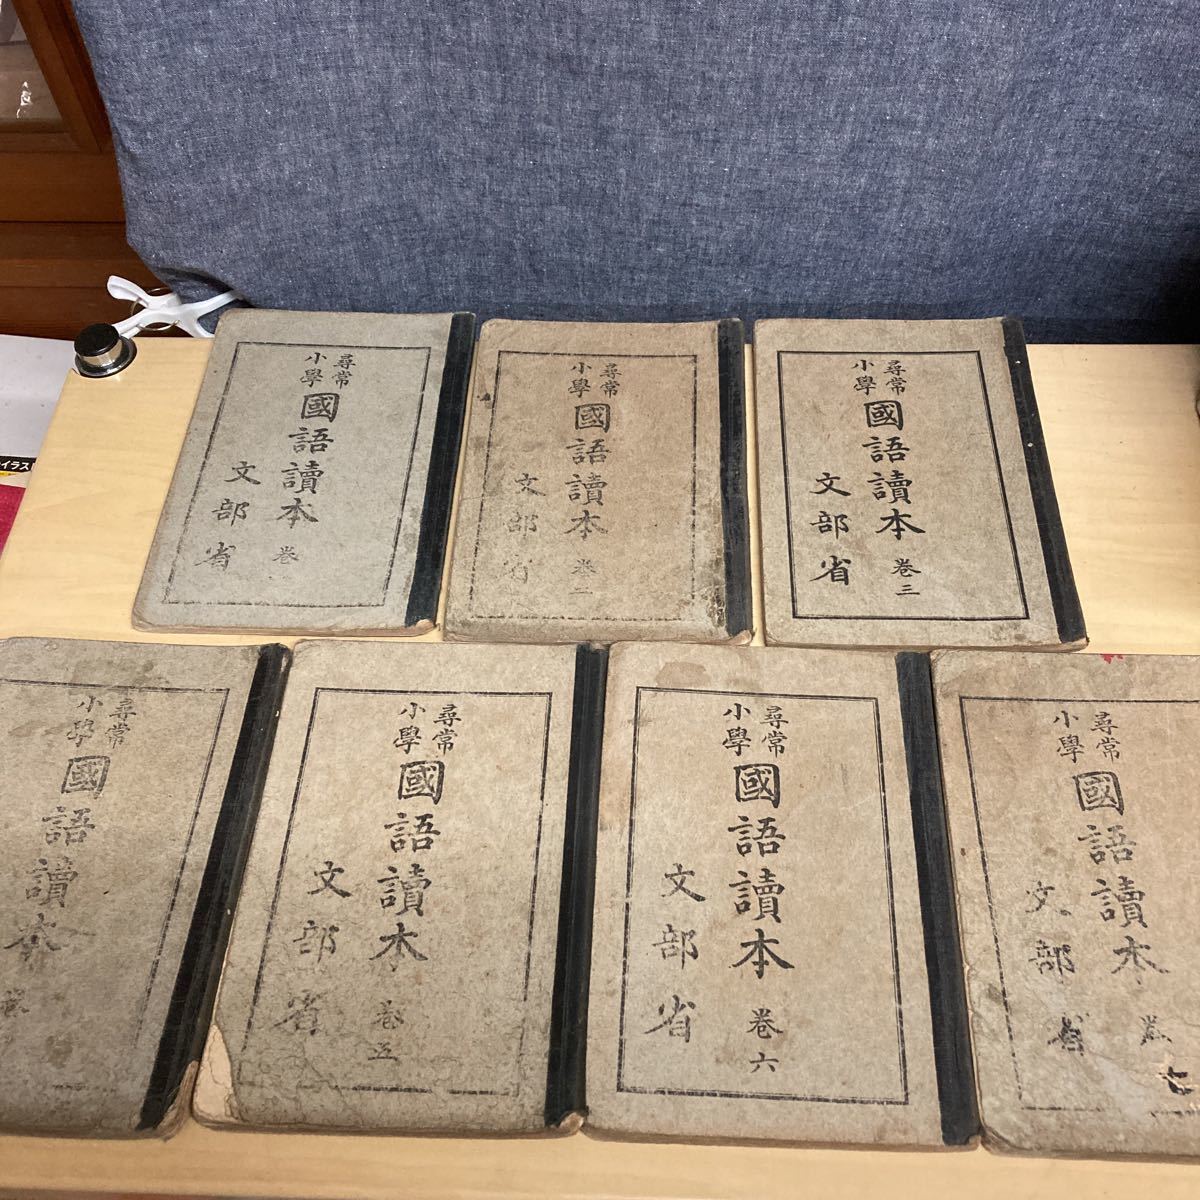 尋常
小學
國語讀本 巻
文部省
尋常
小學
國語讀本 巻二
文部省
尋常
小學
國語讀本 巻三
文部省
尋常
小學
國語讀本
尋常
小學
國語讀本 巻五
文部省
尋常
小學
國語讀本 巻六
文部省
尋常
小學
國語讀本 巻七
文部省
イラス